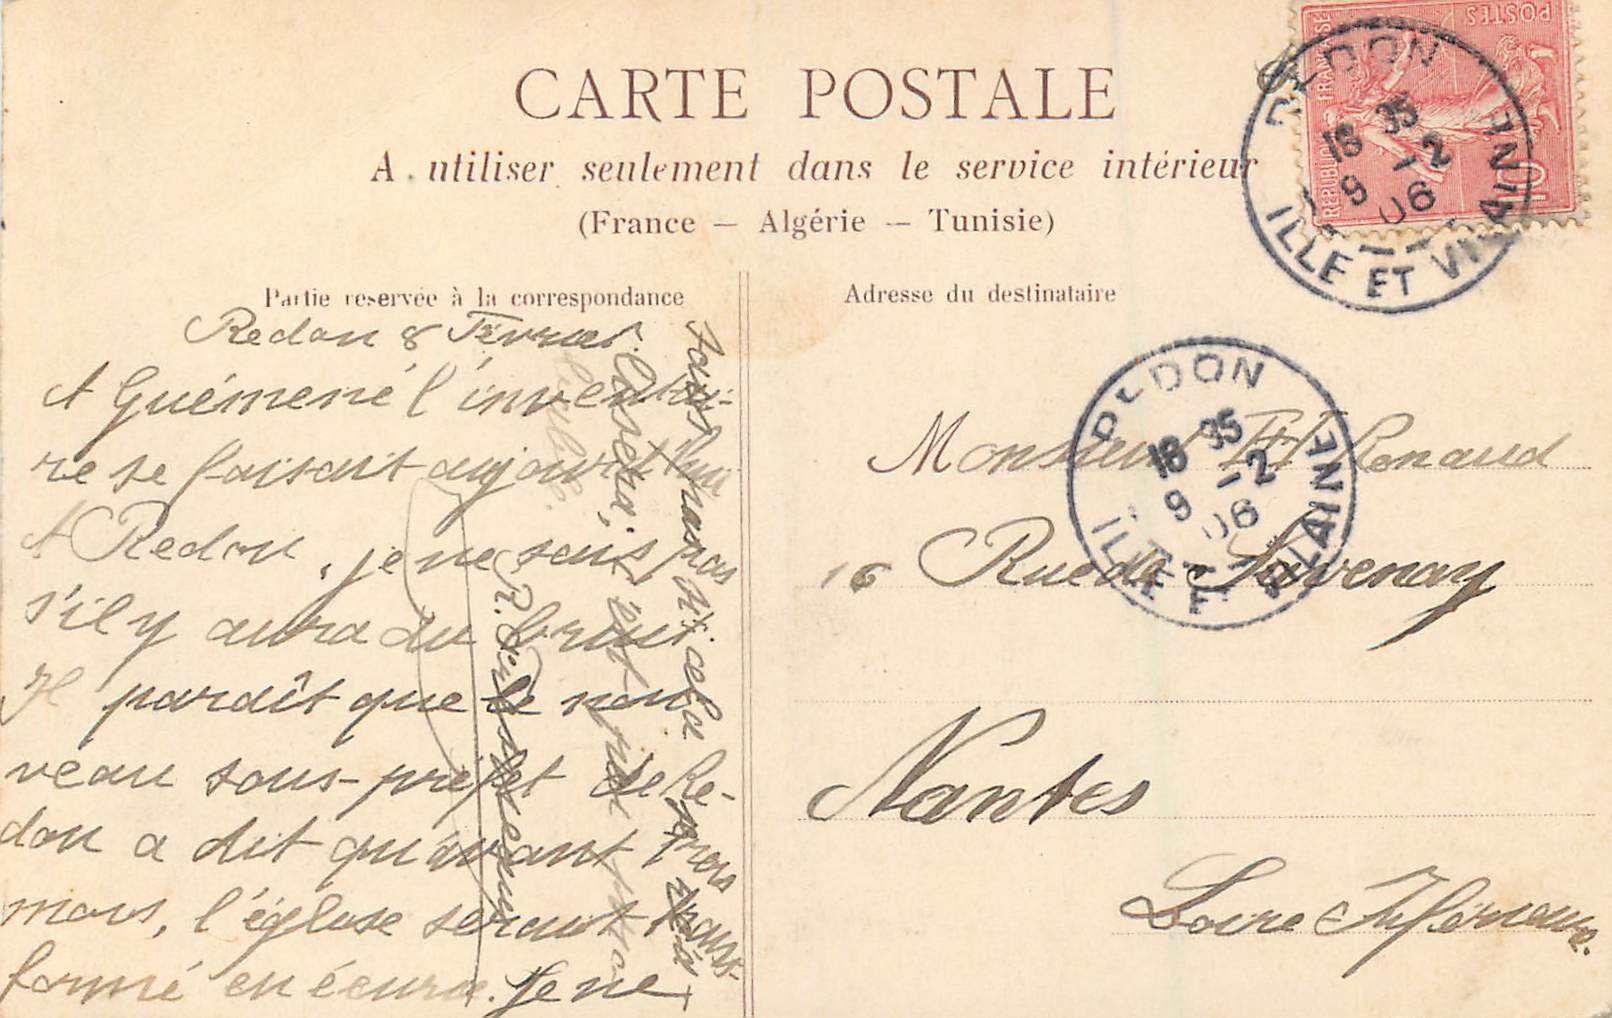 CARTE POSTALE
A utiliser seulement dans le service intérieur
(France — Algérie — Tunisie)
POSTES
REPUBLIQUE FRANÇAISE
10
REDON
18 35
9 -2
06
ILLE ET VILAINE
Partie reservée à la correspondance
Redon 8 Fevrier.
A Guémené l'inventai-
re se faisait aujourd'hui
A Redon, je ne sais pas
s'il y aura du bruit
Il paraît que le nou
veau sous-préfet de Re-
don a dit qu'avant trois
mois, l'église serait trans-
formé en écurie. Je ne
sais pas si cela
se
passera, c'est
Adresse du destinataire
REDON
18 35
9 -2
06
ILLE ET VILAINE
Monsieur Renaud
16 Rue de Savenay
Nantes
Loire Inférieure.